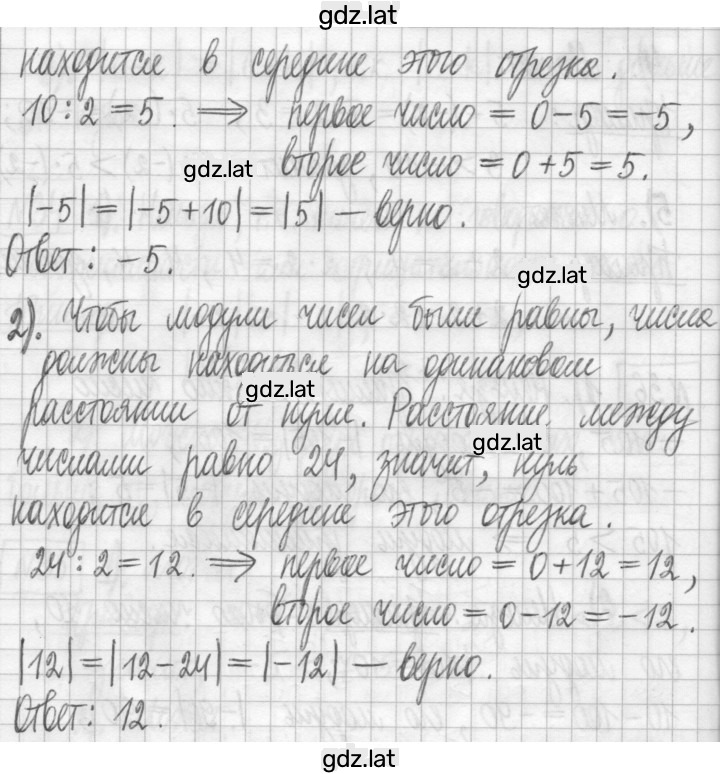 gdz.lat
находится в середине этого отрезка.
10 : 2 = 5. ⟹ первое число = 0 - 5 = -5,
gdz.lat
второе число = 0 + 5 = 5.
|-5| = |-5 + 10| = |5| — верно.
Ответ: -5.
gdz.lat
2). Чтобы модули чисел были равны, числа
должны находиться на одинаковом
gdz.lat
расстоянии от нуля. Расстояние между
gdz.lat
числами равно 24, значит, нуль
находится в середине этого отрезка.
24 : 2 = 12. ⟹ первое число = 0 + 12 = 12,
второе число = 0 - 12 = -12.
|12| = |12 - 24| = |-12| — верно.
Ответ: 12.
gdz.lat